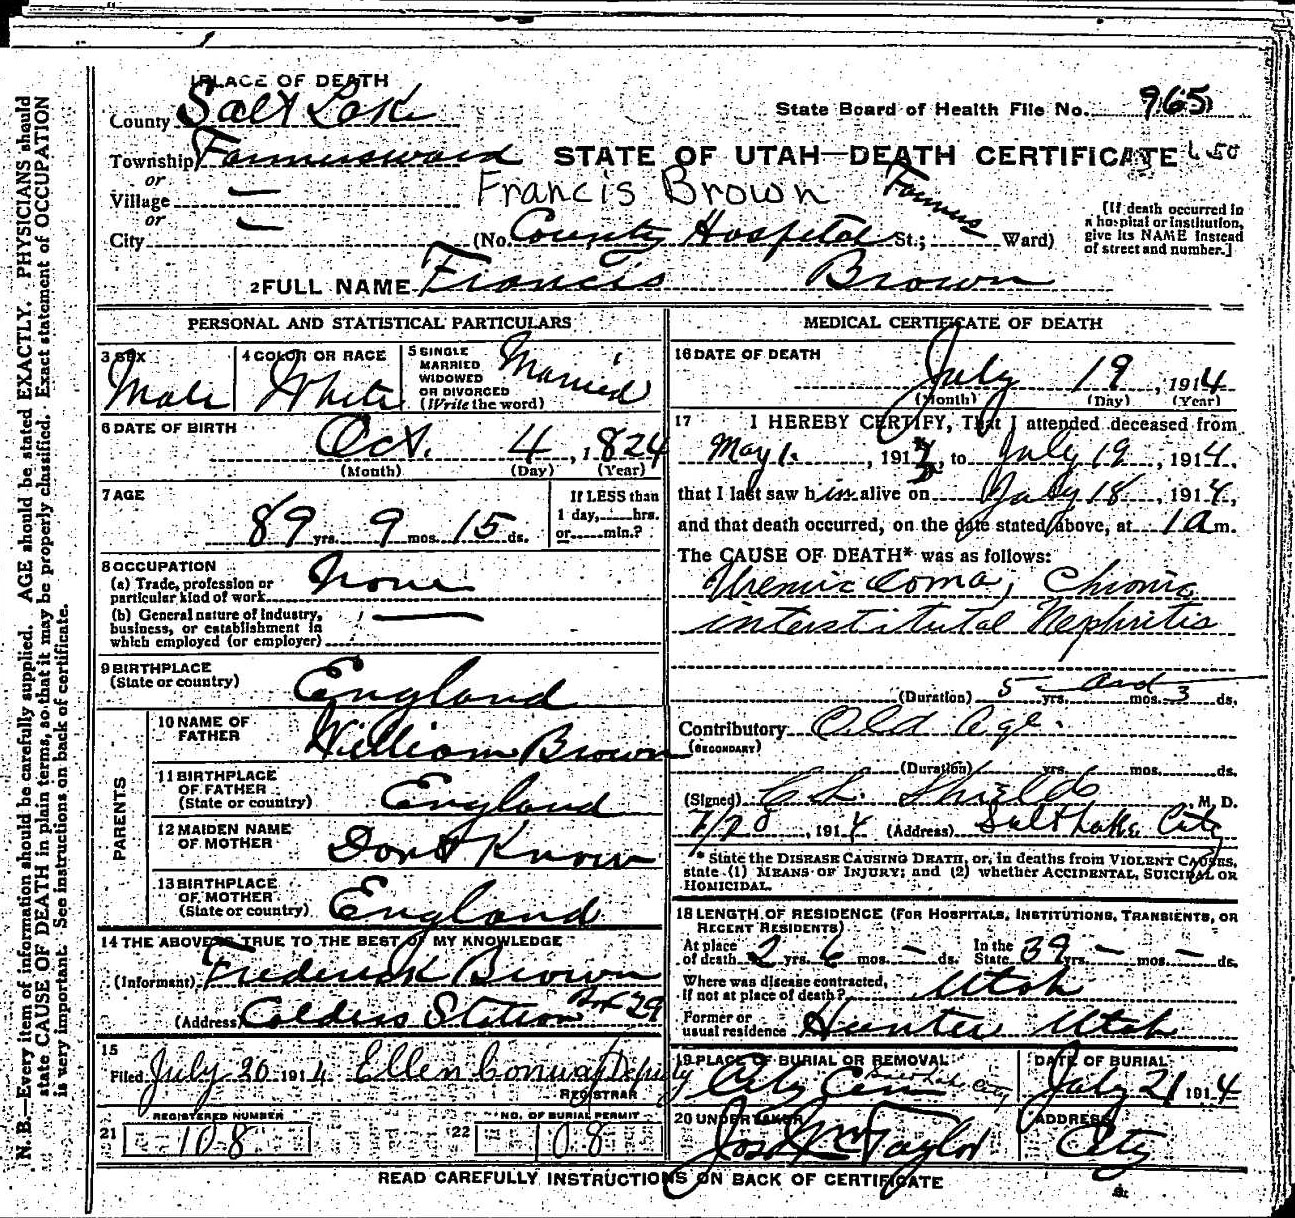 1 PLACE OF DEATH
County Salt Lake
State Board of Health File No. 965
Township Farmersward
or
Village —
or
City —
STATE OF UTAH—DEATH CERTIFICATE
Francis Brown
Farmers
(No. County Hospital St.; Ward)
(If death occurred in
a hospital or institution,
give its NAME instead
of street and number.]
2 FULL NAME Francis Brown
PERSONAL AND STATISTICAL PARTICULARS
3 SEX
Male
4 COLOR OR RACE
White
5 SINGLE
MARRIED
WIDOWED
OR DIVORCED
(Write the word)
Married
6 DATE OF BIRTH
Oct. 4, 1824
(Month) (Day) (Year)
7 AGE
89 yrs. 9 mos. 15 ds.
If LESS than
1 day, hrs.
or min.?
8 OCCUPATION
(a) Trade, profession or
particular kind of work None
(b) General nature of industry,
business, or establishment in
which employed (or employer) —
9 BIRTHPLACE
(State or country) England
PARENTS
10 NAME OF
FATHER William Brown
11 BIRTHPLACE
OF FATHER
(State or country) England
12 MAIDEN NAME
OF MOTHER Dont Know
13 BIRTHPLACE
OF MOTHER
(State or country) England
14 THE ABOVE IS TRUE TO THE BEST OF MY KNOWLEDGE
(Informant) Frederick Brown
(Address) Calders Station Box 29
15
Filed July 20 1914 Ellen Conway Deputy
REGISTRAR
REGISTERED NUMBER
21 108
NO. OF BURIAL PERMIT
22 108
MEDICAL CERTIFICATE OF DEATH
16 DATE OF DEATH
July 19, 1914
(Month) (Day) (Year)
17 I HEREBY CERTIFY, That I attended deceased from
May 1., 191 , to July 19, 1914,
that I last saw him alive on July 18, 1914,
and that death occurred, on the date stated above, at 1 a m.
The CAUSE OF DEATH* was as follows:
Uremic Coma, Chronic
interstitutal Nephritis
(Duration) 5 yrs. and mos. 3 ds.
Contributory Old Age.
(SECONDARY)
(Duration) yrs. mos. ds.
(Signed) C. L. Shields, M. D.
7/20, 1914 (Address) Salt Lake City
* State the DISEASE CAUSING DEATH, or, in deaths from VIOLENT CAUSES,
state (1) MEANS OF INJURY; and (2) whether ACCIDENTAL, SUICIDAL OR
HOMICIDAL.
18 LENGTH OF RESIDENCE (FOR HOSPITALS, INSTITUTIONS, TRANSIENTS, OR
RECENT RESIDENTS)
At place
of death 2 yrs. 6 mos. — ds.
In the
State 39 yrs. — mos. — ds.
Where was disease contracted,
if not at place of death? Utah
Former or
usual residence Hunter Utah
19 PLACE OF BURIAL OR REMOVAL
City Cem Salt Lake City
DATE OF BURIAL
July 21 1914
20 UNDERTAKER
Jos Wm Taylor
ADDRESS
City
READ CAREFULLY INSTRUCTIONS ON BACK OF CERTIFICATE
N. B.—Every item of information should be carefully supplied. AGE should be stated EXACTLY. PHYSICIANS should
state CAUSE OF DEATH in plain terms, so that it may be properly classified. Exact statement of OCCUPATION
is very important. See instructions on back of certificate.